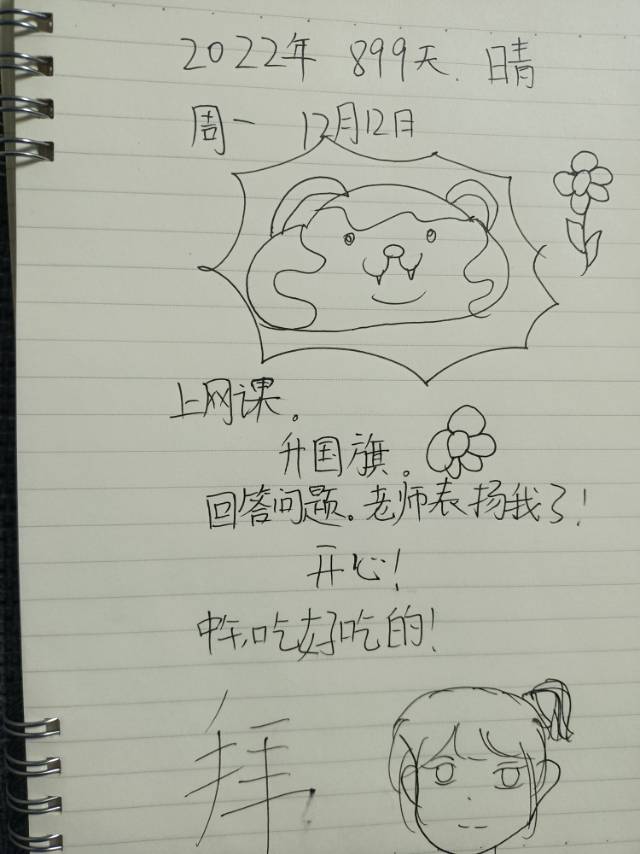 2022年 899天. 晴
周一 12月12日
上网课。
升国旗。
回答问题。老师表扬我了!
开心!
中午,吃好吃的!
拜